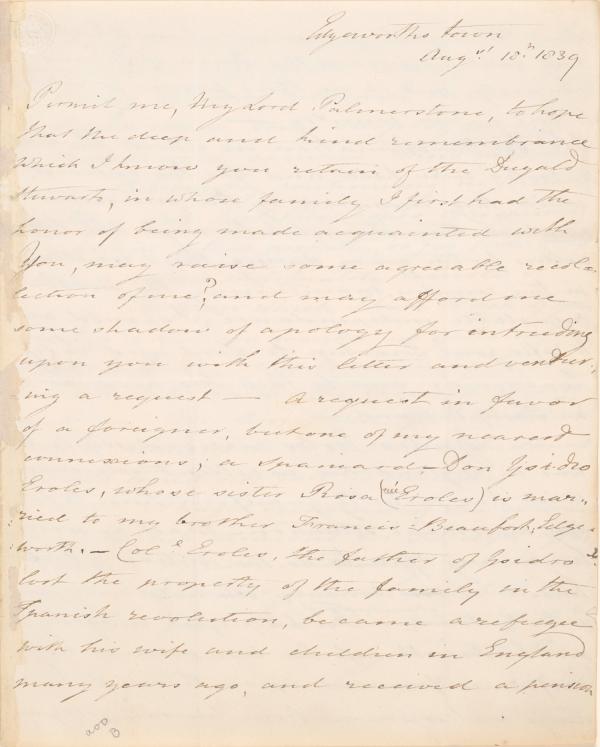 Edgeworths town
Augst. 18th. 1839
Permit me, My Lord Palmerstone, to hope
that the deep and kind remembrance
which I know you retain of the Dugald
Stewarts, in whose family I first had the
honor of being made acquainted with
You, may raise some agreeable recol-
lection of me? and may afford me
some shadow of apology for intruding
upon you with this letter and ventur-
-ing a request — A request in favor
of a foreigner, but one of my nearest
connexions; a Spaniard - Don Ysidro
Eroles, whose sister Rosa (née Eroles) is mar-
-ried to my brother Francis-Beaufort, Edge-
worth. — Col.l Eroles, the father of Ysidro
lost the property of the family in the
Spanish revolution, became a refugee
with his wife and children in England
many years ago, and received a pension